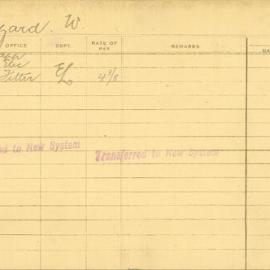 zard. W.
OFFICE DEPT. RATE OF PAY REMARKS
Elec
Fitter EL 4 2/8
ed to New System Transferred to New System